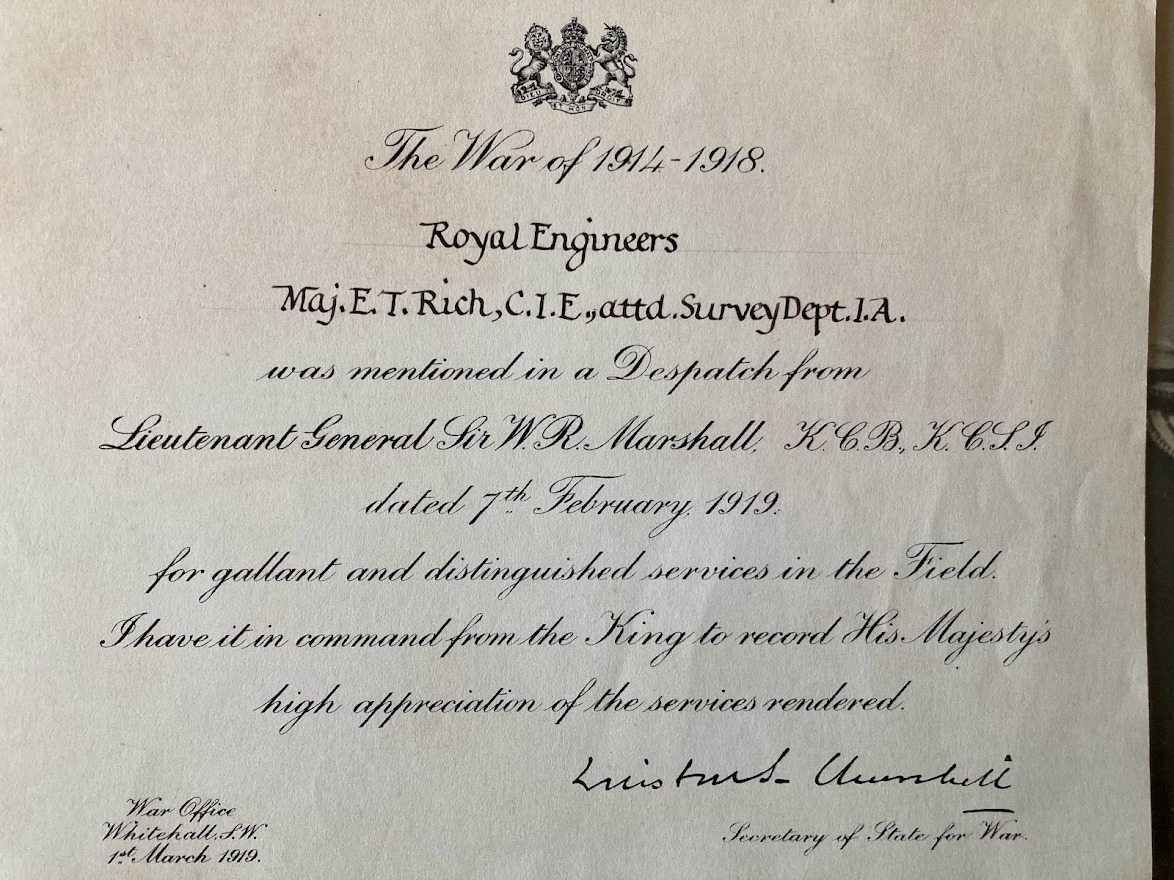 DIEU ET MON DROIT
The War of 1914-1918.
Royal Engineers
Maj. E. T. Rich, C.I.E., attd. Survey Dept. I.A.
was mentioned in a Despatch from
Lieutenant General Sir W. R. Marshall, K.C.B., K.C.S.I.
dated 7th February, 1919.
for gallant and distinguished services in the Field.
I have it in command from the King to record His Majesty's
high appreciation of the services rendered.
Winston S. Churchill
Secretary of State for War.
War Office
Whitehall, S.W.
1st March 1919.